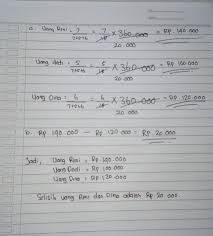 a. Uang Rini = 7/7+5+6 = 7/18 x 360.000 = Rp. 140.000
20.000
Uang Dodi = 5/7+5+6 = 5/18 x 360.000 = Rp 100.000
20.000
Uang Dina = 6/7+5+6 = 6/18 x 360.000 = Rp 120.000
20.000
b. Rp 140.000 - Rp 120.000 = Rp 20.000
Jadi, Uang Rini = Rp 140.000
Uang Dodi = Rp 100.000
Uang Dina = Rp 120.000
Selisih uang Rini dan Dina adalah Rp 20.000